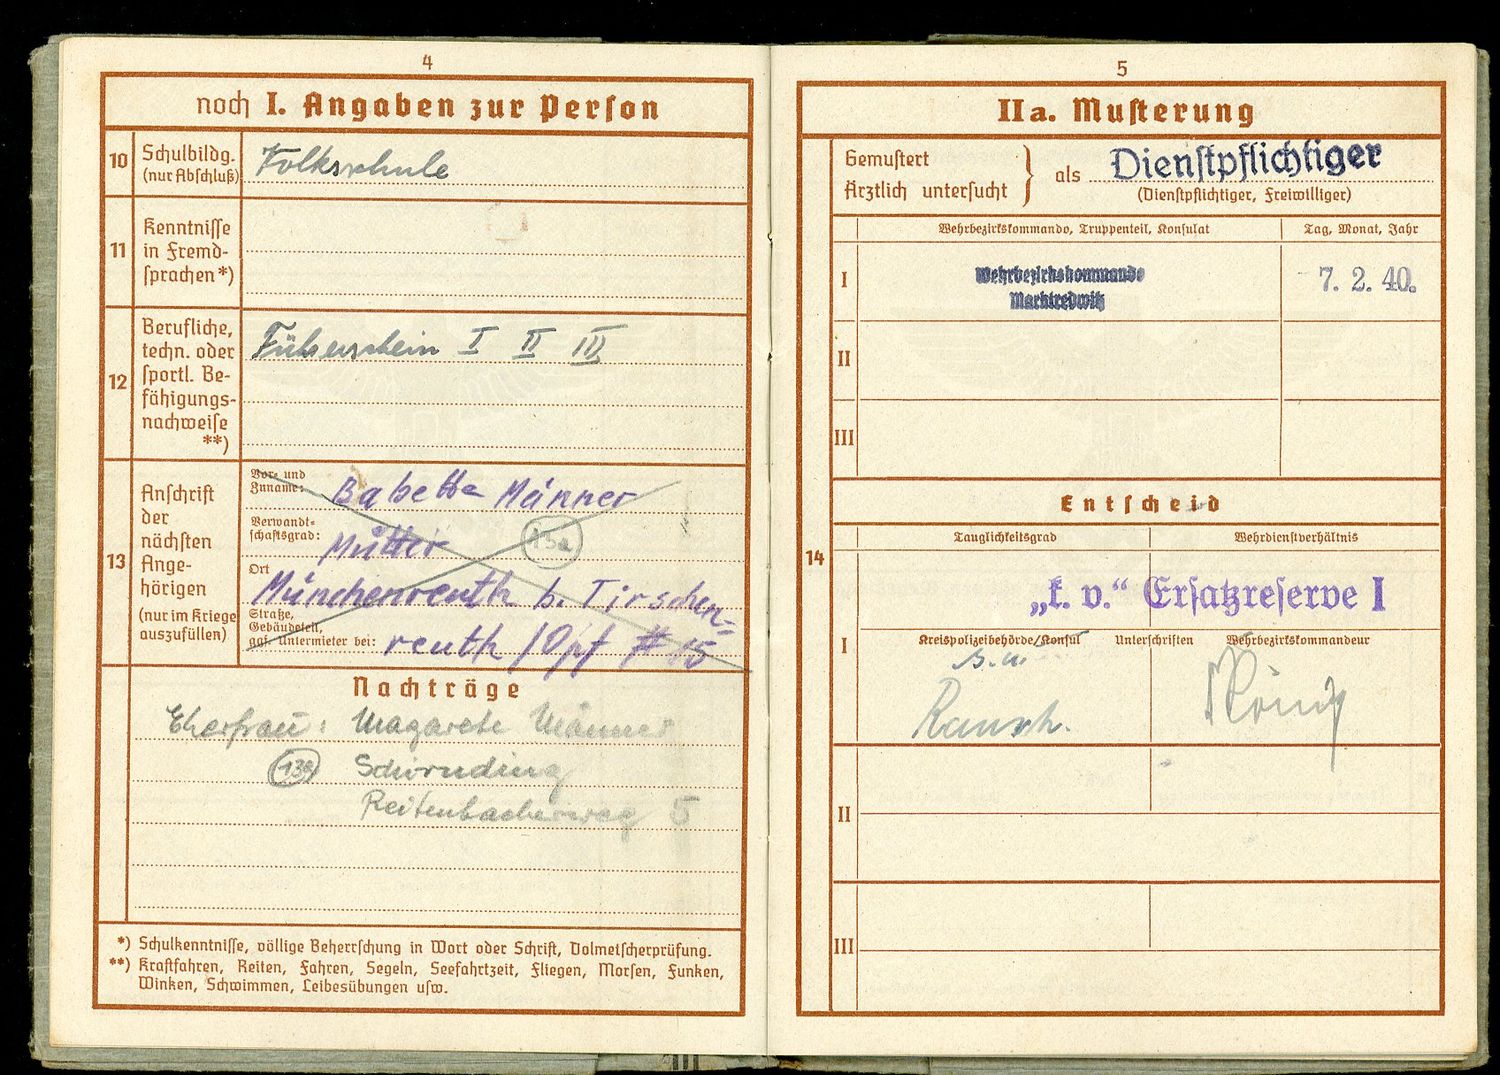 4
noch I. Angaben zur Person
10 Schulbildg. (nur Abschluß) Volksschule
11 Kenntnisse in Fremd-
sprachen *)
12 Berufliche,
techn. oder
sportl. Be-
fähigungs-
nachweise
**)
Führerschein I II III
13 Anschrift
der
nächsten
Ange-
hörigen
(nur im Kriege
auszufüllen)
Vor- und
Zuname: Babette Männer
Verwandt-
schaftsgrad: Mutter
Ort Münchenreuth b. Tirschen-
Straße,
Gebäudeteil,
ggf. Untermieter bei: reuth / Opf # 15
Nachträge
Ehefrau: Magarete Männer
13a Schirnding
Reitenbacherweg 5
*) Schulkenntnisse, völlige Beherrschung in Wort oder Schrift, Dolmetscherprüfung.
**) Kraftfahren, Reiten, Fahren, Segeln, Seefahrtzeit, Fliegen, Morsen, Funken,
Winken, Schwimmen, Leibesübungen usw.
5
IIa. Musterung
Gemustert
Ärztlich untersucht
als Dienstpflichtiger
(Dienstpflichtiger, Freiwilliger)
Wehrbezirkskommando, Truppenteil, Konsulat
Tag, Monat, Jahr
I Wehrbezirkskommando
Marktredwitz
7. 2. 40.
II
III
Entscheid
14 Tauglichkeitsgrad Wehrdienstverhältnis
I „k. v.“ Ersatzreserve I
Kreispolizeibehörde/Konsul Unterschriften Wehrbezirkskommandeur
II
III